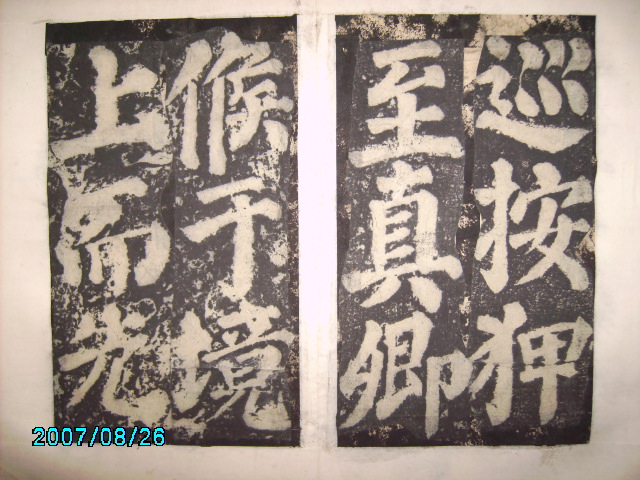 巡按狎
至真卿
候于境
上而先
2007/08/26